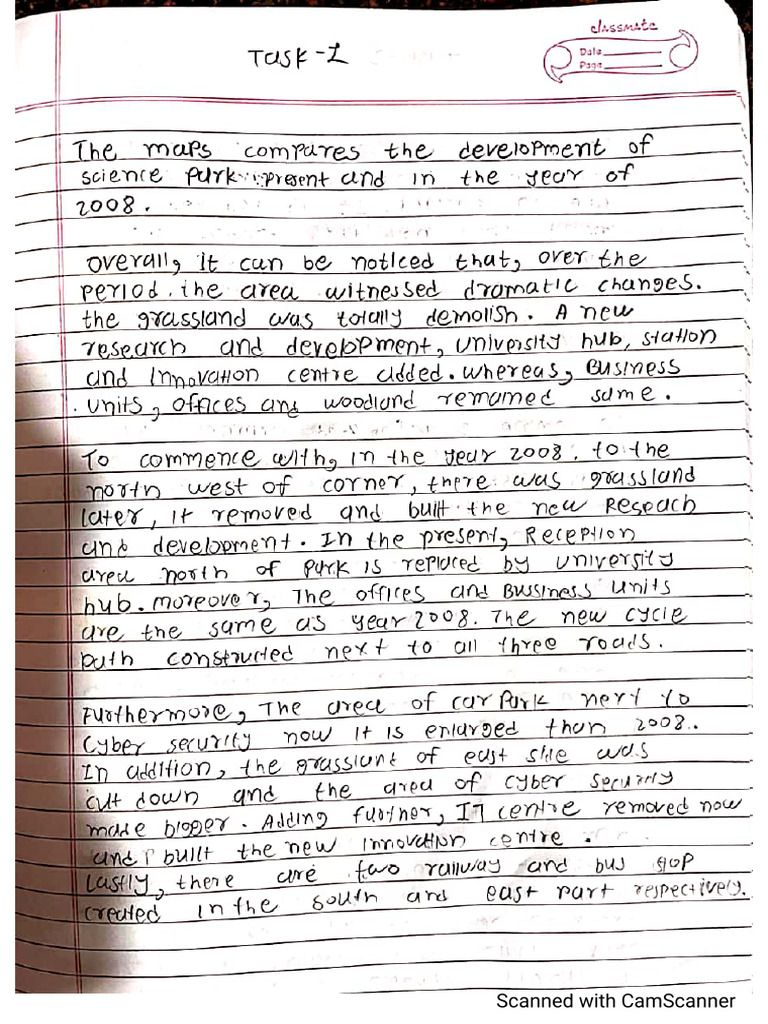 classmate
Date
Page
Task-1
The maps compares the development of
science park present and in the year of
2008.
overall, it can be noticed that, over the
period. the area witnessed dramatic changes.
the grassland was totally demolish. A new
research and development, university hub, station
and Innovation centre added. whereas, Business
units, offices and woodland remained same.
To commence with, in the year 2008. to the
north west of corner, there was grassland
later, it removed and built the new Reseach
and development. In the present, Reception
area north of park is replaced by university
hub. moreover, The offices and Bussiness units
are the same as year 2008. The new cycle
path constructed next to all three roads.
Furthermore, The area of car park next to
cyber security now it is enlarged than 2008.
In addition, the grasslant of east site was
cut down and the area of cyber security
made bigger. Adding further, IT centre removed now
and built the new innovation centre.
lastly, there are two railway and bus stop
created in the south and east part respectively.
Scanned with CamScanner